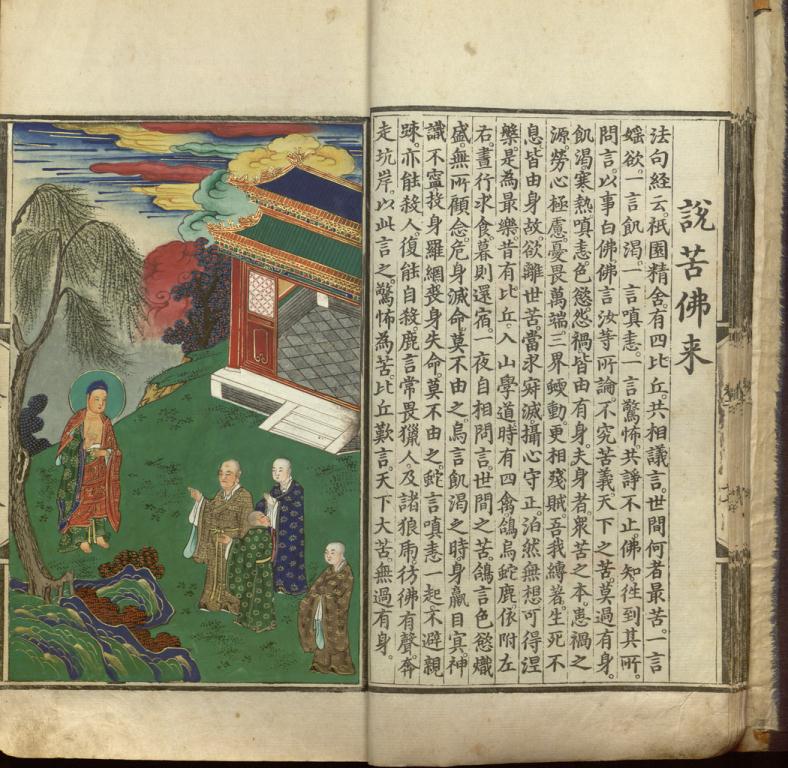 說苦佛来
法句経云。祇園精舍有四比丘。共相議言。世間何者最苦。一言
婬欲。一言飢渴。一言嗔恚。一言驚怖。共諍不止。佛知徃到其所。
問言。以事白佛。佛言汝等所論。不究苦義。天下之苦。莫過有身。
飢渴寒熱。嗔恚色慾。怨禍皆由有身。夫身者。衆苦之本。患禍之
源。勞心極慮。憂畏萬端。三界蝡動。更相殘賊。吾我縛著。生死不
息。皆由身故。欲離世苦。當求寂滅。攝心守正。泊然無想。可得涅
槃。是為最樂。昔有比丘。入山學道。時有四禽。鴿烏蛇鹿。依附左
右。晝行求食。暮則還宿。一夜自相問言。世間之苦。鴿言色慾熾
盛。無所顧念。危身滅命。莫不由之。烏言飢渴之時。身羸目㝠。神
識不寧。投身羅網。喪身失命。莫不由之。蛇言嗔恚一起。不避親
踈。亦能殺人。復能自殺。鹿言常畏獵人。及諸狼虎。彷彿有聲。奔
走坑岸。以此言之。驚怖為苦。比丘歎言。天下大苦。無過有身。